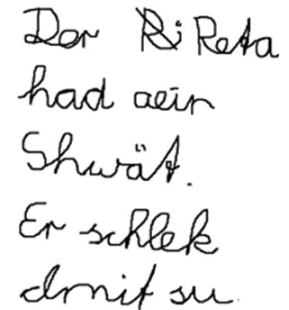 Der Reta
had aein
Shwät.
Er schlek
dmit su